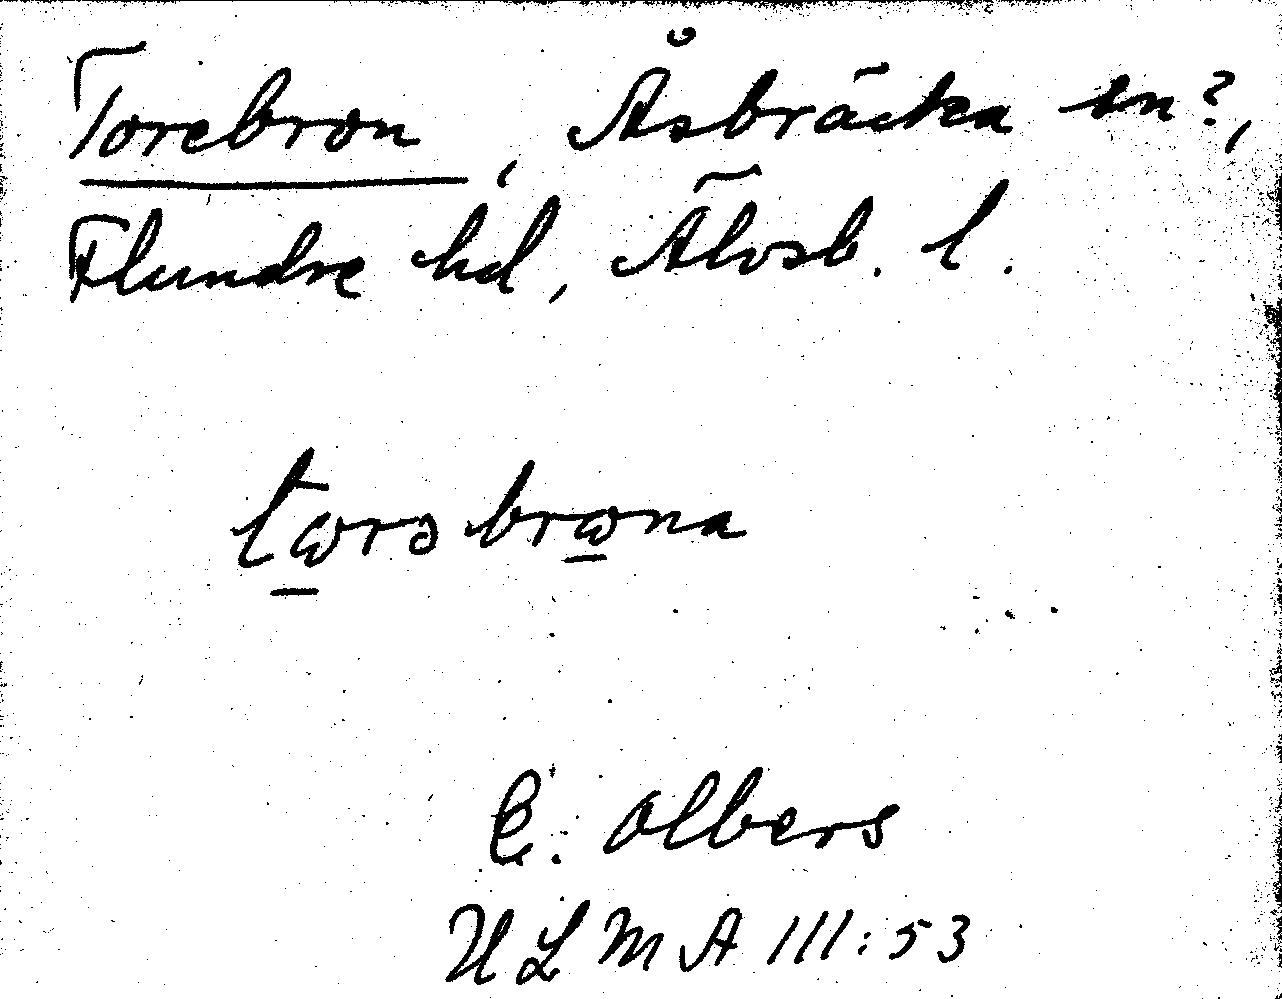 Torebron, Åsbräcka sn?,
Flundre hd, Älvsb. l.
tɷrəbrɷna
E. Olbers
ULMA 111:53